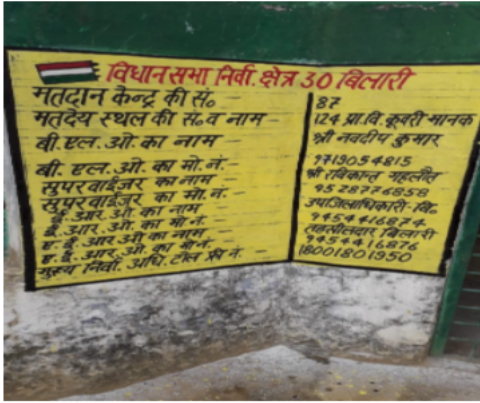 विधानसभा निर्वा. क्षेत्र 30 बिलारी
मतदान केन्द्र की सं० - 87
मतदेय स्थल की सं० व नाम - 124 प्रा.वि. कूवरी मानक
बी. एल. ओ. का नाम - श्री नवदीप कुमार
बी. एल. ओ. का मो. नं. - 9719054815
सुपरवाईजर का नाम - श्री रविकान्त गहलौत
सुपरवाईजर का मो. नं. - 9528776858
ई. आर. ओ. का नाम - उपजिलाधिकारी-बि०
ई. आर. ओ. का मो. नं. - 9454416874
ए. ई. आर. ओ. का नाम - तहसीलदार बिलारी
ए. ई. आर. ओ. का मो. नं. - 9454416876
मुख्य निर्वा. अधि. टोल फ्री नं. - 18001801950